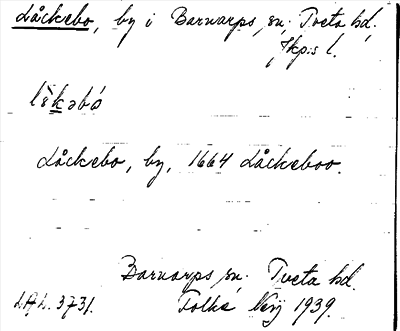 Låckebo, by i Barnarps sn, Tveta hd.
Jkp:s l.
låkəbo
Låckebo, by, 1664 Låckeboo.
Barnarps sn. Tveta hd.
LAL. 3731. Folke Ney 1939.